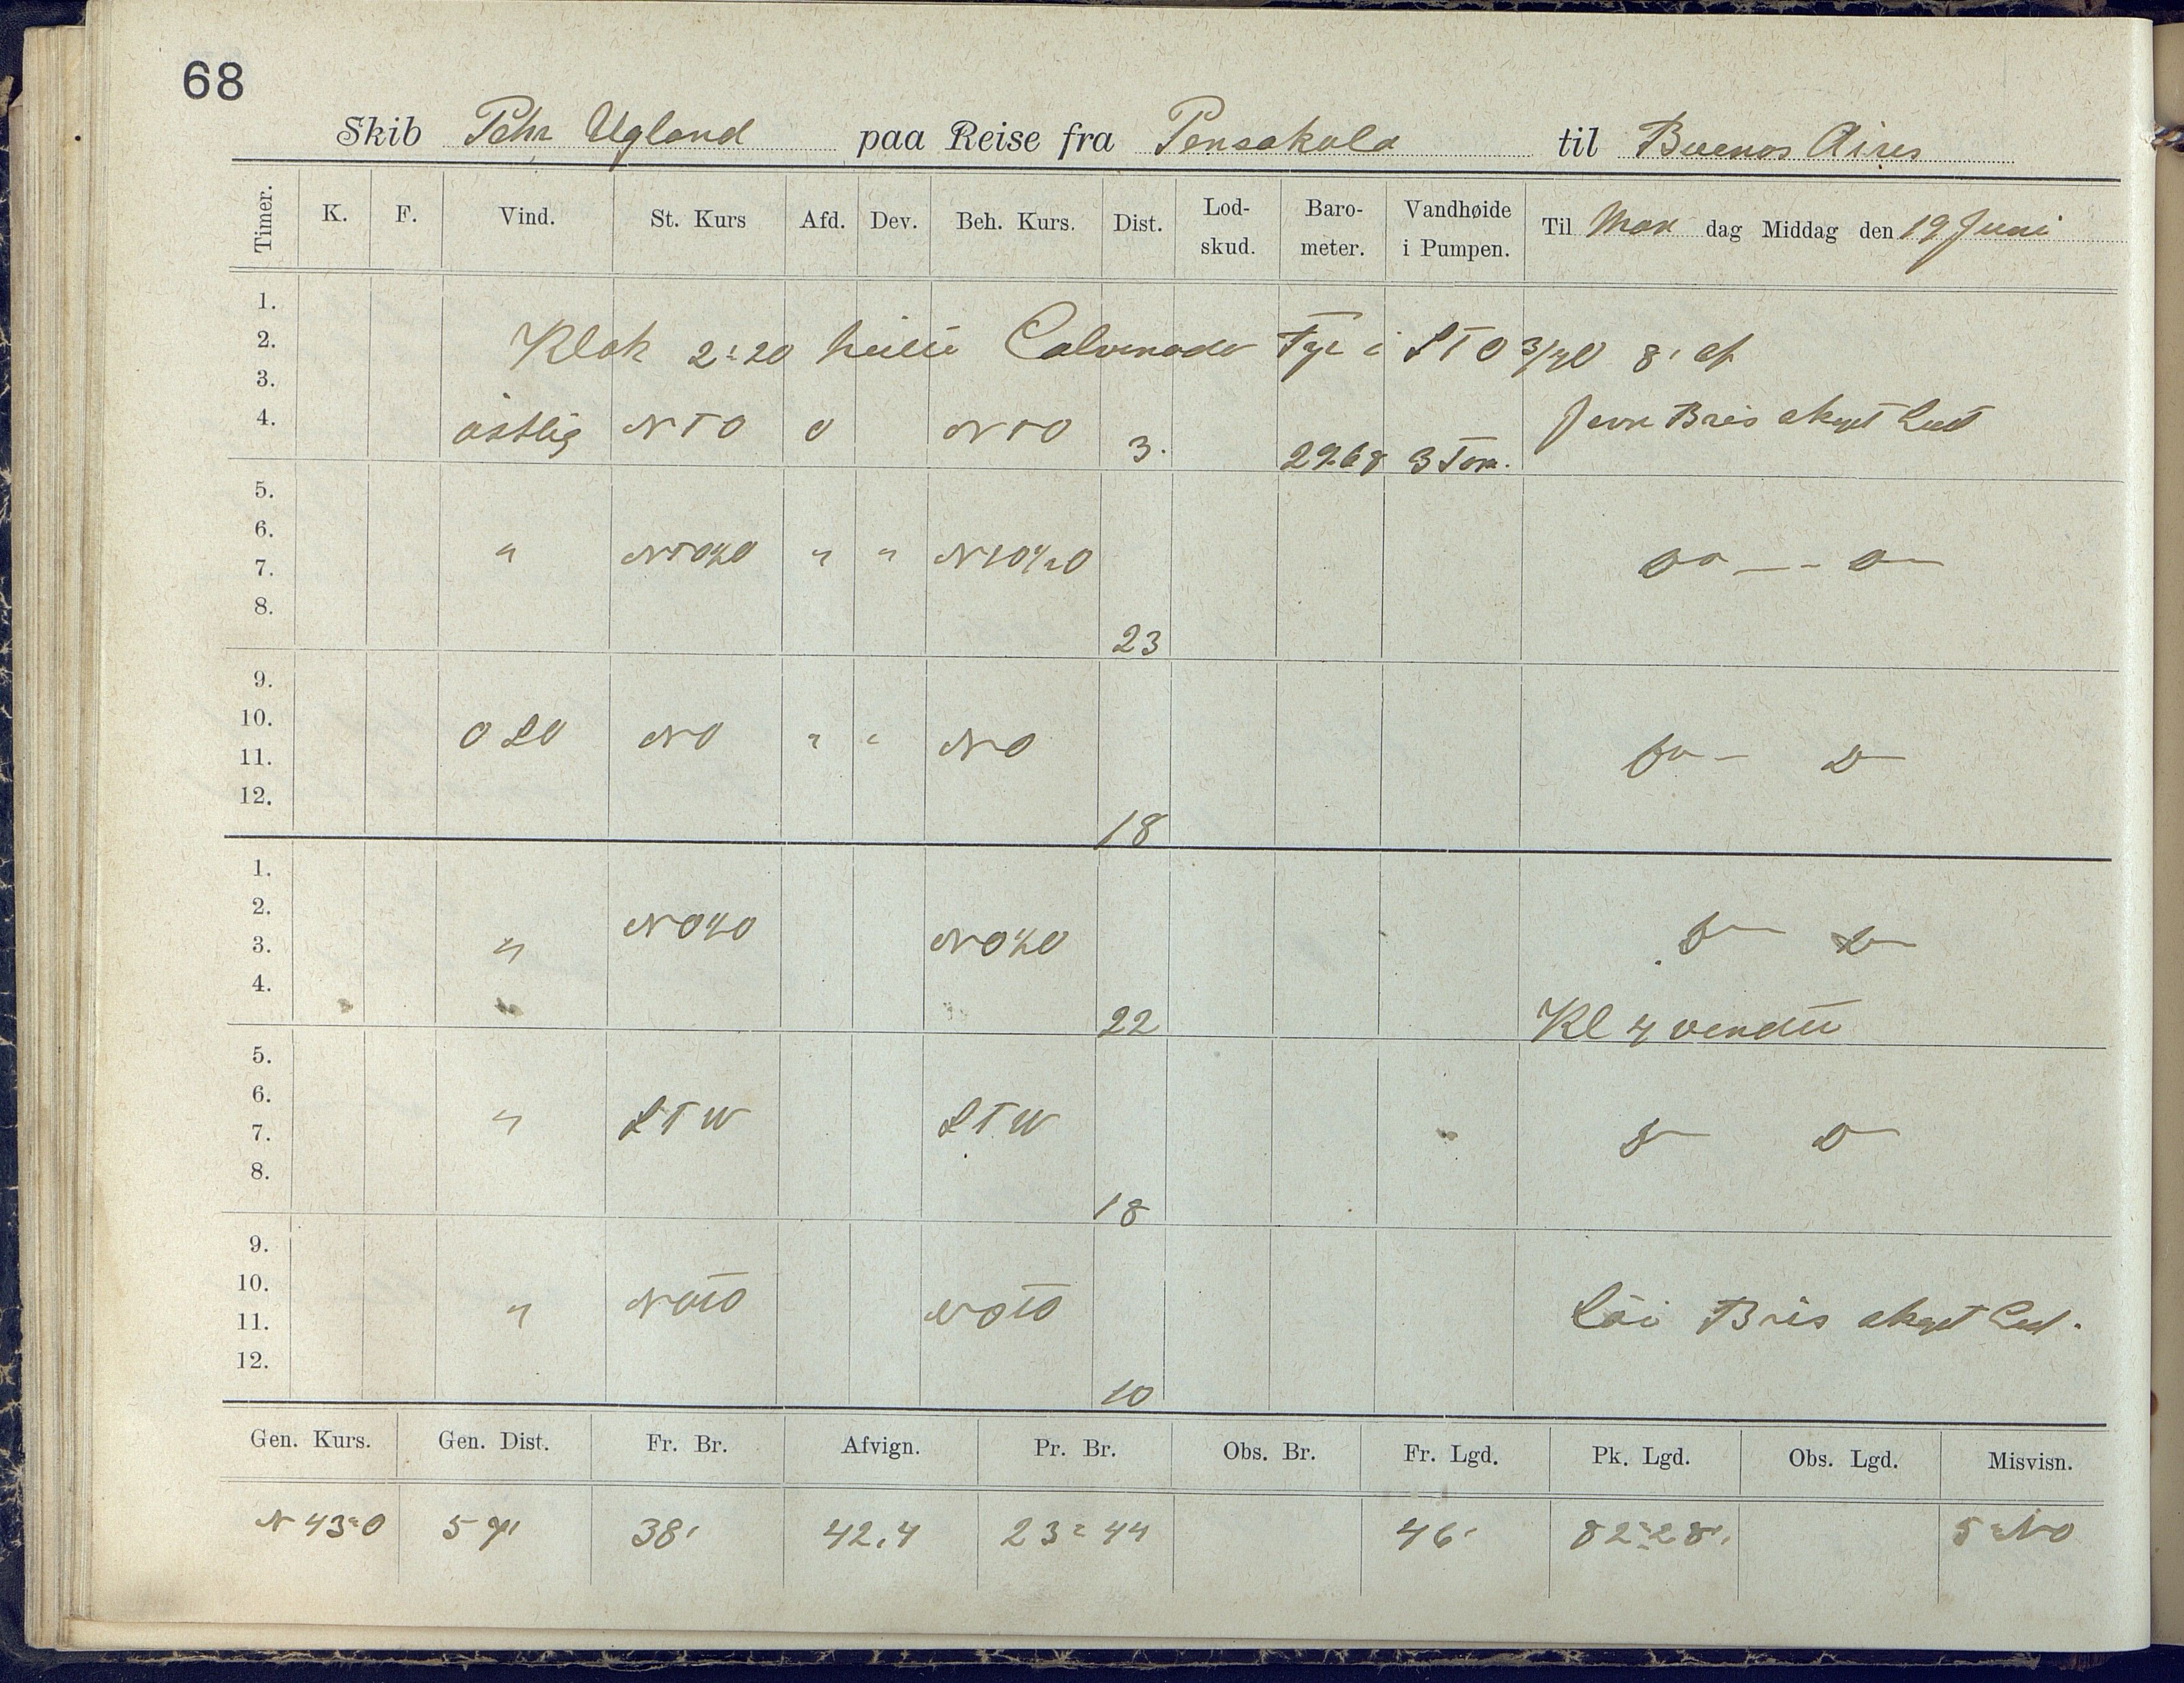 68
Skib Pehr Ugland paa Reise fra Pensakola til Buenos Aires
Timer. K. F. Vind. St. Kurs Afd. Dev. Beh. Kurs. Dist. Lod-skud. Baro-meter. Vandhøide i Pumpen. Til Man dag Middag den 19 Juni
1.
2. Klok 2:20 Fyr i STO 3/4 O 8' af
3.
4. östlig NTO 0 NTO 3. 29.68 3 Tom. Jevn Bris skyet Luft
5.
6.
7. " NTO½O " " NTO½O
8. 23
9.
10. OSO NO " " NO
11.
12. 18
1.
2. NO½O
3. " NO½O
4. 22 Kl 4 vendte
5.
6. " STW STW
7.
8. 18
9.
10. NOTO NOTO
11. " Löi Bris skyet Luft.
12. 10
Gen. Kurs. Gen. Dist. Fr. Br. Afvign. Pr. Br. Obs. Br. Fr. Lgd. Pk. Lgd. Obs. Lgd. Misvisn.
N 43° O 57' 38' 42,4 23° 44 46' 82° 28' 5° NO